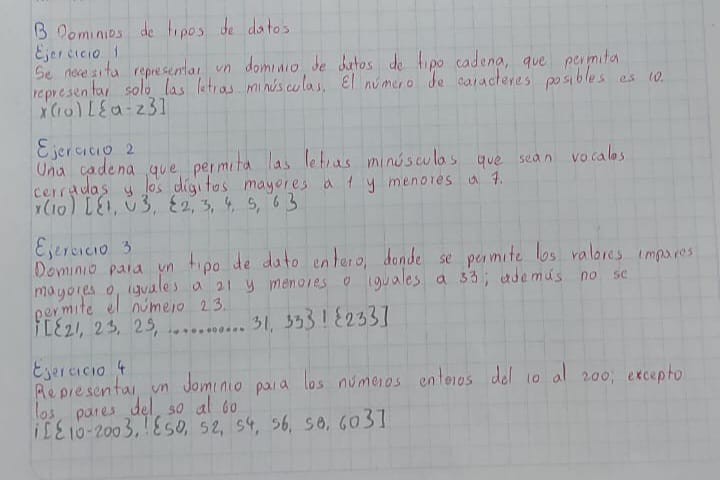 B Dominios de tipos de datos
Ejercicio 1
Se necesita representar un dominio de datos de tipo cadena, que permita
representar solo las letras minúsculas. El número de caracteres posibles es 10.
x(10) [{a-z}]
Ejercicio 2
Una cadena que permita las letras minúsculas que sean vocales
cerradas y los dígitos mayores a 1 y menores a 7.
x(10) [{i, u}, {2, 3, 4, 5, 6}
Ejercicio 3
Dominio para un tipo de dato entero, donde se permite los valores impares
mayores o iguales a 21 y menores o iguales a 33; además no se
permite el número 23.
i[{21, 23, 25, ............ 31, 33}!{23}]
Ejercicio 4
Representar un dominio para los números enteros del 10 al 200; excepto
los pares del 50 al 60
i[{10-200},!{50, 52, 54, 56, 58, 60}]